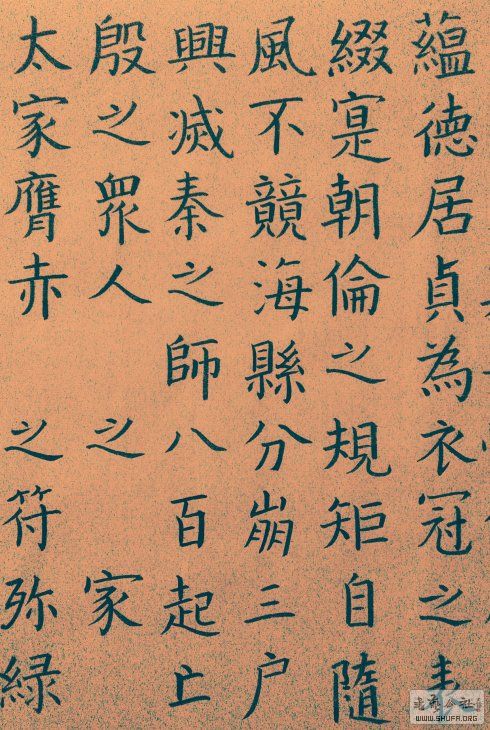 蘊德居貞為衣冠之表
綴寔朝倫之規矩自隨
風不競海縣分崩三户
興滅秦之師八百起亡
殷之眾人之家
太家膺赤之符弥緑
WWW.SHUFA.ORG